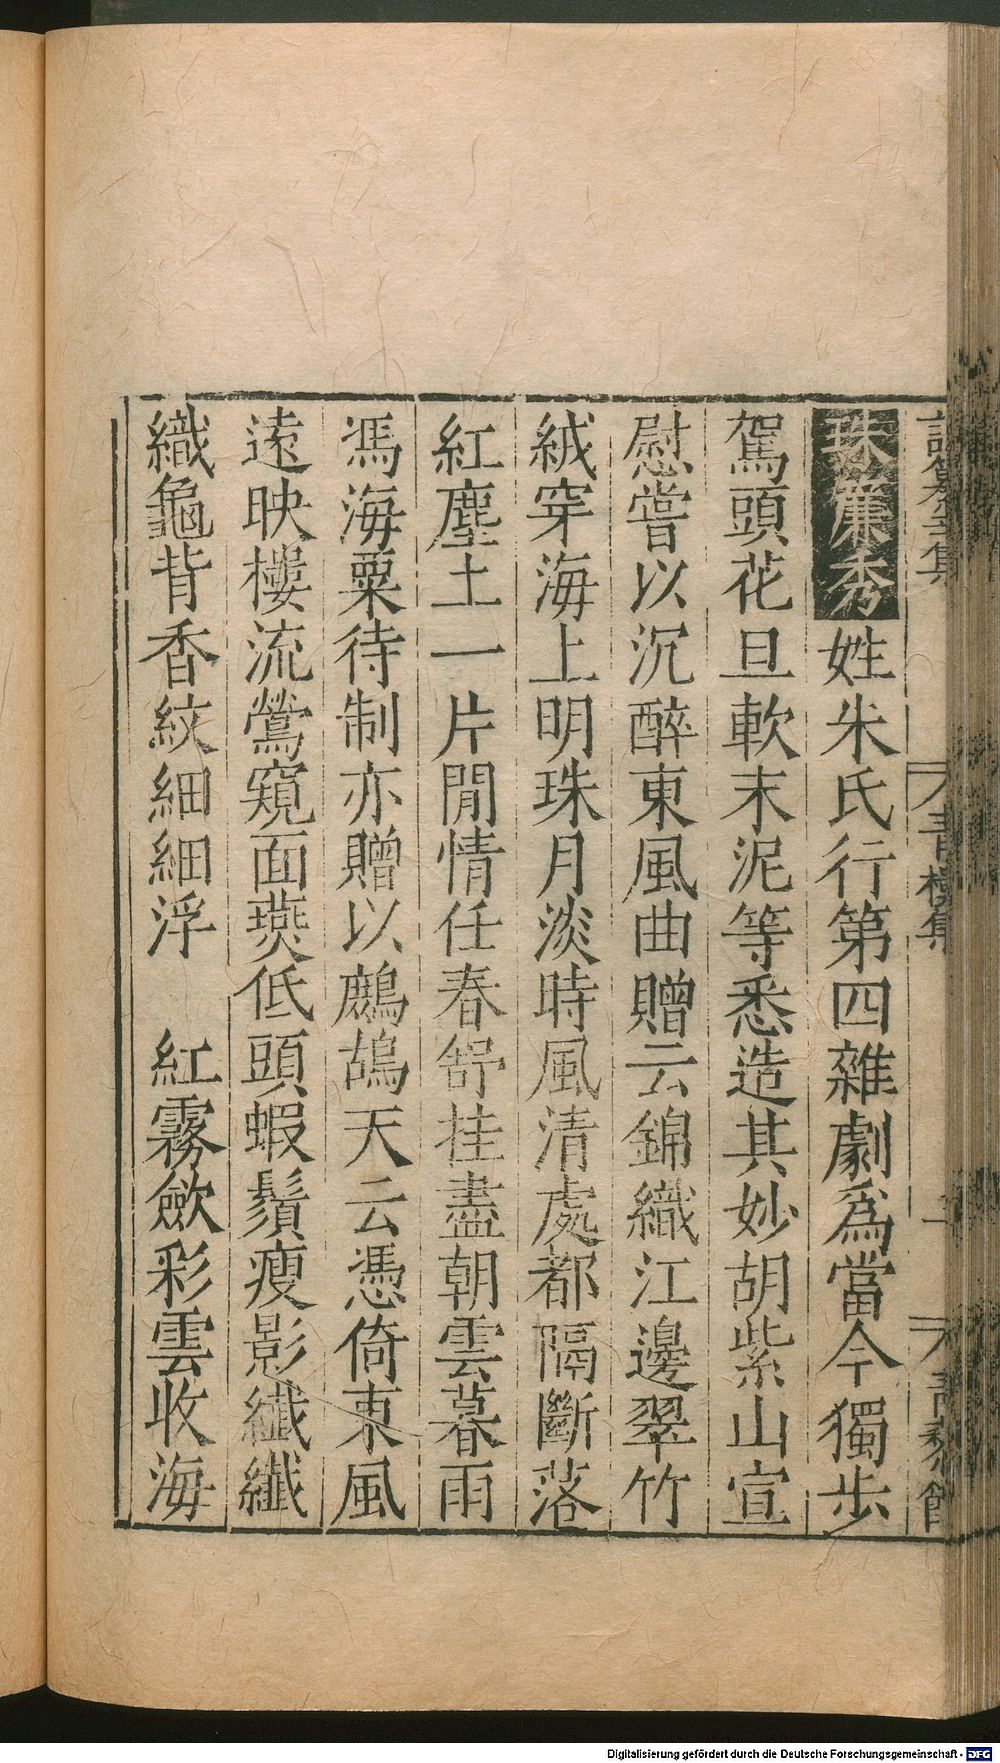 珠簾秀姓朱氏行第四雜劇爲當今獨步
駕頭花旦軟末泥等悉造其妙胡紫山宣
慰嘗以沉醉東風曲贈云錦織江邊翠竹
絨穿海上明珠月淡時風清處都隔斷落
紅塵土一片閒情任春舒挂盡朝雲暮雨
馮海粟待制亦贈以鷓鴣天云憑倚東風
遠映樓流鶯窺面燕低頭蝦鬚瘦影纖纖
織龜背香紋細細浮　紅霧歛彩雲收海
青樓集
Digitalisierung gefördert durch die Deutsche Forschungsgemeinschaft - DFG